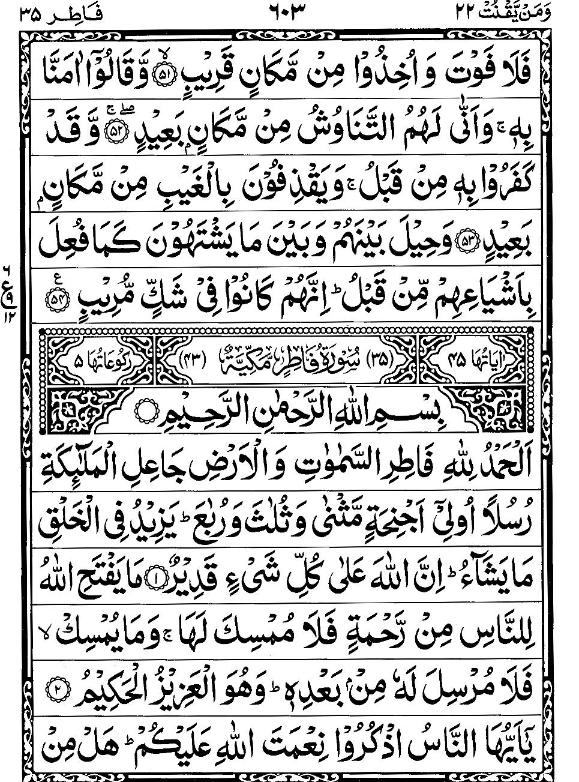 وَمَنۡ يَّقۡنُتۡ ٢٢ ٦٠٣ فَاطِر ٣٥
فَلَا فَوۡتَ وَاُخِذُوۡا مِنۡ مَّكَانٍ قَرِيۡبٍ ۙ﴿۵۱﴾ وَّقَالُوۡۤا اٰمَنَّا
بِهٖ ۚ وَاَنّٰى لَهُمُ التَّنَاوُشُ مِنۡ مَّكَانٍۭ بَعِيۡدٍ ۚۖ﴿۵۲﴾ وَّقَدۡ
كَفَرُوۡا بِهٖ مِنۡ قَبۡلُ ۚ وَيَقۡذِفُوۡنَ بِالۡغَيۡبِ مِنۡ مَّكَانٍۭ
بَعِيۡدٍ ﴿۵۳﴾ وَحِيۡلَ بَيۡنَهُمۡ وَبَيۡنَ مَا يَشۡتَهُوۡنَ كَمَا فُعِلَ
بِاَشۡيَاعِهِمۡ مِّنۡ قَبۡلُ ؕ اِنَّهُمۡ كَانُوۡا فِىۡ شَكٍّ مُّرِيۡبٍ ﴿۵۴﴾ ع
٦ ع ٩ ١٢
اٰيَاتُهَا ۴۵ (۳۵) سُوۡرَةُ فَاطِرٍ مَكِّيَّةٌ (۴۳) رُكُوۡعَاتُهَا ۵
بِسۡمِ اللهِ الرَّحۡمٰنِ الرَّحِيۡمِ
اَلۡحَمۡدُ لِلّٰهِ فَاطِرِ السَّمٰوٰتِ وَالۡاَرۡضِ جَاعِلِ الۡمَلٰٓٮِٕكَةِ
رُسُلًا اُولِىۡۤ اَجۡنِحَةٍ مَّثۡنٰى وَثُلٰثَ وَرُبٰعَ ؕ يَزِيۡدُ فِى الۡخَلۡقِ
مَا يَشَآءُ ؕ اِنَّ اللهَ عَلٰى كُلِّ شَىۡءٍ قَدِيۡرٌ ﴿۱﴾ مَا يَفۡتَحِ اللهُ
لِلنَّاسِ مِنۡ رَّحۡمَةٍ فَلَا مُمۡسِكَ لَهَا ۚ وَمَا يُمۡسِكۡ ۙ
فَلَا مُرۡسِلَ لَهٗ مِنۡۢ بَعۡدِهٖ ؕ وَهُوَ الۡعَزِيۡزُ الۡحَكِيۡمُ ﴿۲﴾
يٰۤاَيُّهَا النَّاسُ اذۡكُرُوۡا نِعۡمَتَ اللهِ عَلَيۡكُمۡ ؕ هَلۡ مِنۡ